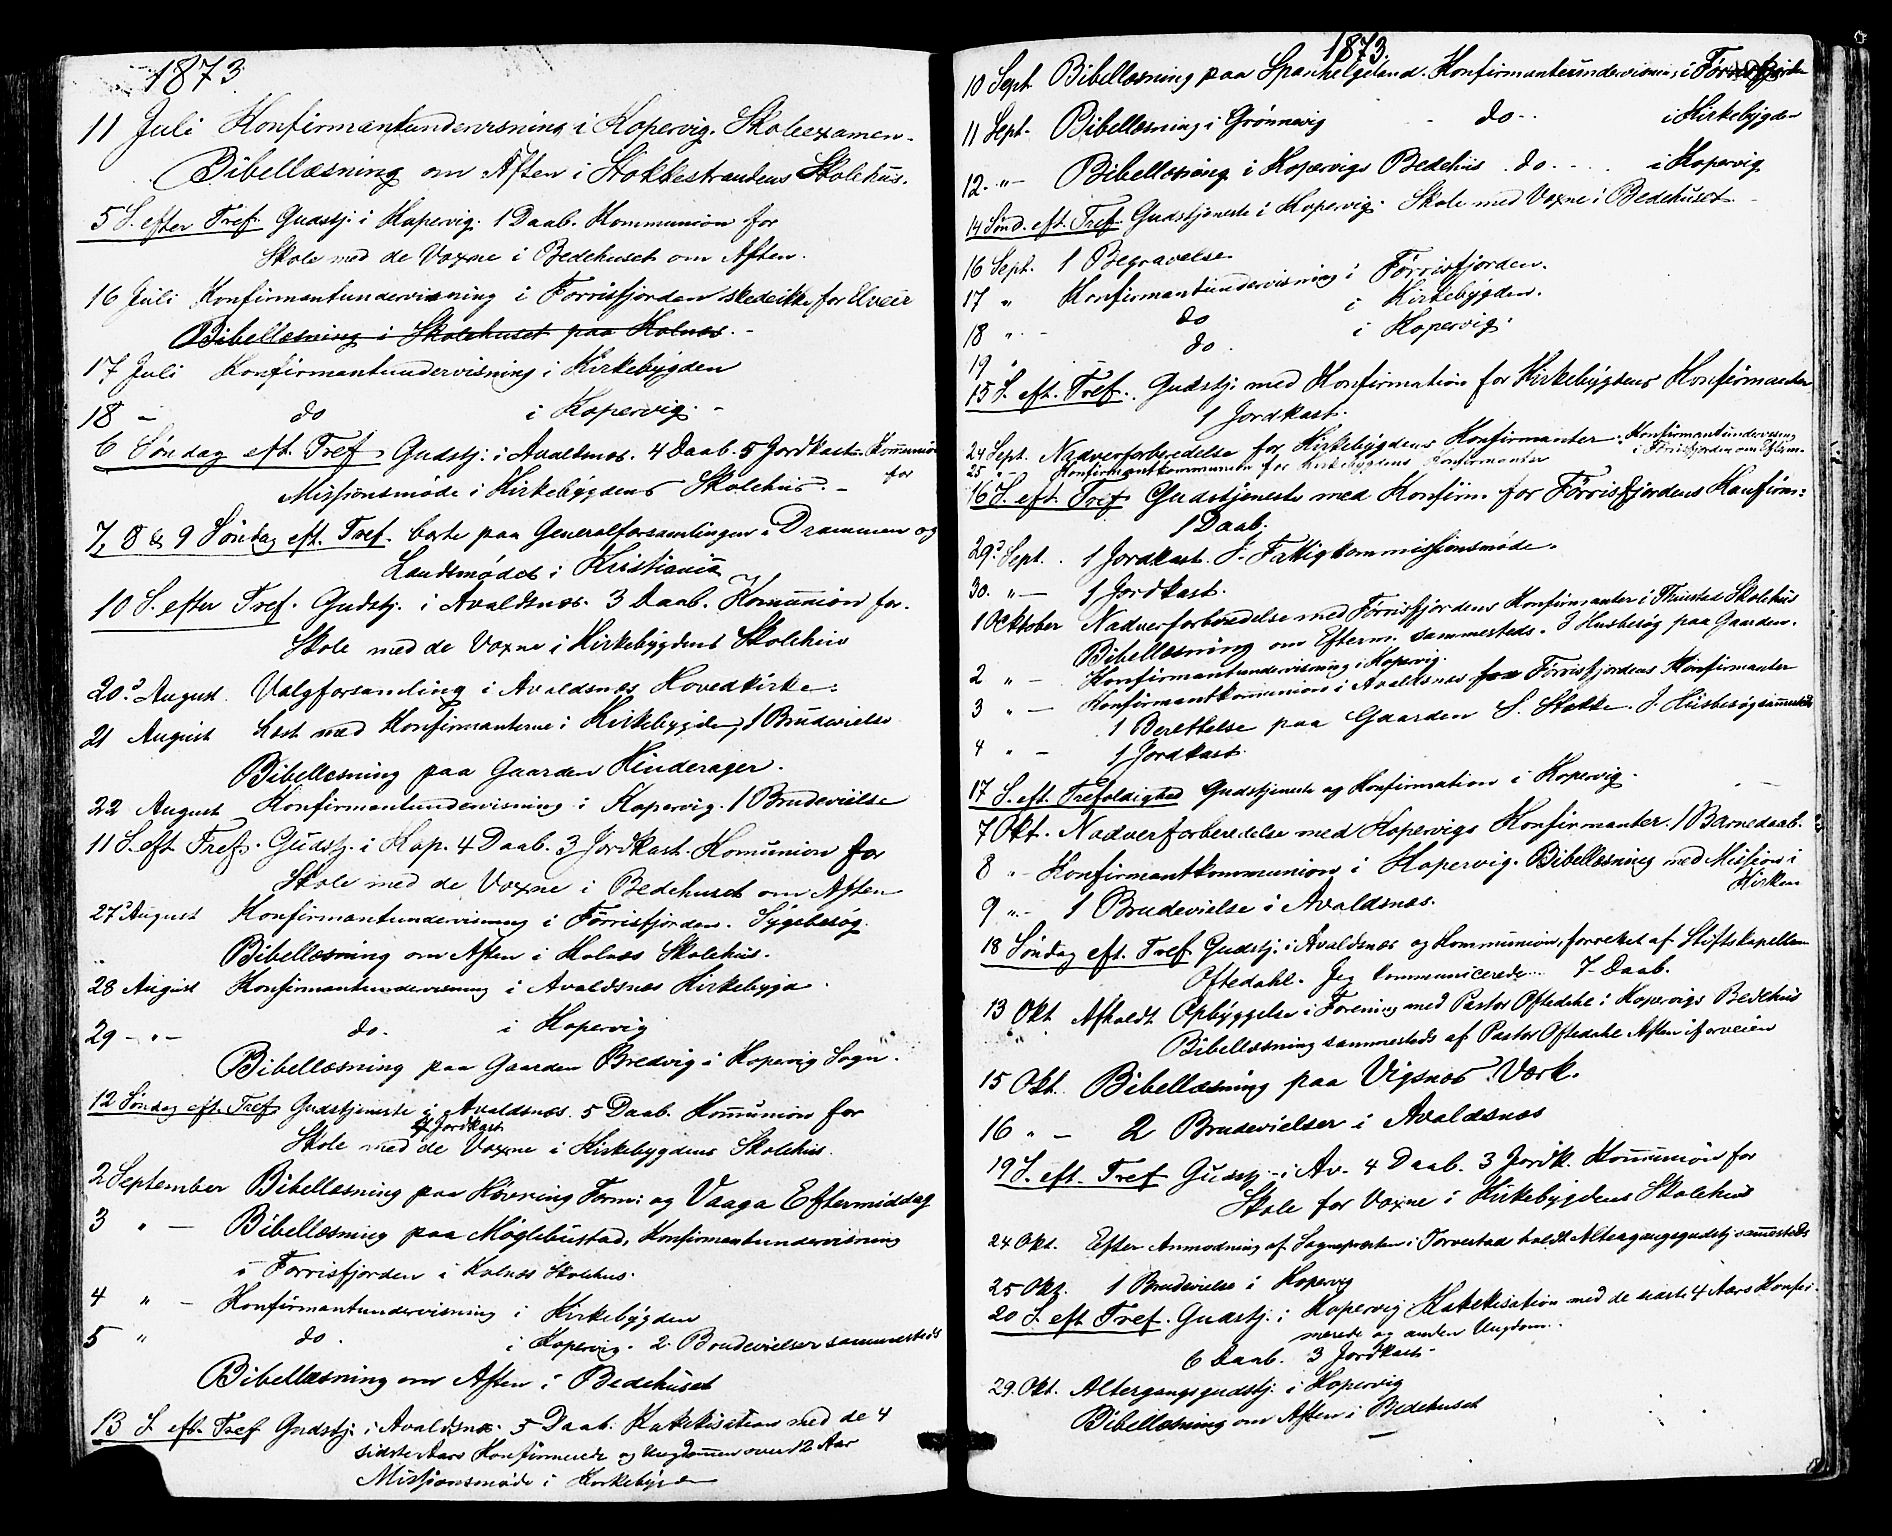 1873.
11 Juli Konfirmantundervisning i Kopervig. Skoleexamen.
Bibellæsning om Aften i Stokkestrandens Skolehus.
5 S. efter Tref. Gudstj. i Kopervig. 1 Daab. Kommunion for
Skole med de Voxne i Bedehuset om Aften.
16 Juli Konfirmantundervisning i Førrisfjorden skede ikke for Uveir
Bibellæsning i Skolehuset paa Kolnæs.
17 Juli Konfirmantundervisning i Kirkebygden
18 - do i Kopervig. -
6 Søndag eft. Tref. Gudstj. i Avaldsnæs. 4 Daab. 5 Jordkast. Kommunion
for
Missionsmøde i Kirkebygdens Skolehus. -
7, 8 & 9 Søndag eft. Tref. borte paa Generalforsamlingen i Drammen og
Landsmødet i Kristiania
10 S. efter Tref. Gudstj. i Avaldsnæs. 3 Daab. Komunion for.
Skole med de Voxne i Kirkebygdens Skolehus
20. August. Valgforsamling i Avaldsnæs Hovedkirke.
21 August Læst med Konfirmanterne i Kirkebygden, 1 Brudevielse
Bibellæsning paa Gaarden Hinderager.
22 August Konfirmantundervisning i Kopervig. 1 Brudevielse
11 S. eft Tref. Gudstj. i Kop. 4 Daab. 3 Jordkast. Komunion for
Skole med de Voxne i Bedehuset om Aften
27 August Konfirmantundervisning i Førrisfjorden. Sygebesøg.
Bibellæsning om Aften i Kolnæs Skolehus.
28 August Konfirmantundervisning i Avaldsnæs Kirkebygd.
29 - " - do. i Kopervig
Bibellæsning paa Gaarden Bredvig i Kopervig Sogn.
12 Søndag eft. Tref. Gudstjeneste i Avaldsnæs. 5 Daab. Komunion for
Jordkast
Skole med de Voxne i Kirkebygdens Skolehus.
2 September Bibellæsning paa Høvring Form: og Vaaga Eftermiddag
3 " - Bibellæsning paa Møglebustad, Konfirmantundervisning
i Førrisfjorden i Kolnæs Skolehus.
4 " - Konfirmantundervisning i Kirkebygden
5 " do. i Kopervig. 2 Brudevielser sammesteds
Bibellæsning om Aften i Bedehuset
13 S. eft. Tref Gudstj. i Avaldsnæs. 5 Daab. Katekisation med de 4
sidste Aars Konfirmerede og Ungdommen over 12 Aar
Missionsmøde i Kirkebygden
1873.
10 Sept. Bibellæsning paa Spanhelgeland. Konfirmantundervisning i Førrisfjorden
11 Sept. Bibellæsning i Grønnevig - do - i Kirkebygden
12. "- Bibellæsning i Kopervigs Bedehus. do. - i Kopervig
14 Sønd. eft. Tref. Gudstjeneste i Kopervig. Skole med Voxne i Bedehuset.
16 Sept. 1 Begravelse
17 " Konfirmantundervisning i Førrisfjorden.
18 " - do i Kirkebygden.
19 " do. i Kopervig.
15 S. eft. Tref. Gudstj. med Konfirmation for Kirkebygdens Konfirmanter
1 Jordkast.
24 Sept. Nadverforberedelse for Kirkebygdens Konfirmanter. Konfirmantundervisning
i Førrisfjorden om Efterm.
25 " - Konfirmantkommunion for Kirkebygdens Konfirmanter
16 S. eft. Tref Gudstjeneste med Konfirm. for Førrisfjordens Konfirm:
1 Daab.
29 Sept. 1 Jordkast. I Fattigkommissionsmøde.
30. "- 1 Jordkast.
1 Ocktober Nadverforberedelse med Førrisfjordens Konfirmanter i Skolehus
Bibellæsning om Efterm. sammesteds. I Husbesøg paa Gaarden.
2 " - Konfirmantundervisning i Kopervig.
3 " - Konfirmantkommunion i Avaldsnæs for Førrisfjordens Konfirmanter
1 Berettelse paa Gaarden S. Stokke. I Husbesøg sammesteds
4 " - 1 Jordkast.
17 S. eft. Trefoldighed Gudstjeneste og Konfirmation i Kopervig.
7 Okt. Nadverforberedelse med Kopervigs Konfirmanter. 1 Barnedaab.
8 "- Konfirmantkommunion i Kopervig. Bibellæsning med Mission i
Kirken
9 "- 1 Brudevielse i Avaldsnæs.
18 Søndag eft. Tref. Gudstj. i Avaldsnæs og Kommunion, forrettet af Stiftskapellan
Oftedahl. Jeg kommunicerede. 7 Daab.
13 Okt. Afholdt Opbyggelse i Forening med Pastor Oftedahl i Kopervigs Bedehus
Bibellæsning sammesteds af Pastor Oftedahl Aften iforveien
15 Okt. Bibellæsning paa Vigsnæs Værk.
16 " - 2 Brudevielser i Avaldsnæs
19 S. eft. Tref Gudstj. i Av. 4 Daab. 3 Jordk. Komunion for
Skole for Voxne i Kirkebygdens Skolehus
24 Okt. Efter Anmodning af Sognepresten i Torvestad holdt Altergangsgudstj. sammesteds
25 Okt. 1 Brudevielse i Kopervig
20 S. eft Tref. Gudstj. i Kopervig Katekisation med de sidste 4 Aars Konfir-
merede og anden Ungdom.
6 Daab. 3 Jordkast.
29. Okt. Altergangsgudstj. i Kopervig
Bibellæsning om Aften i Bedehuset